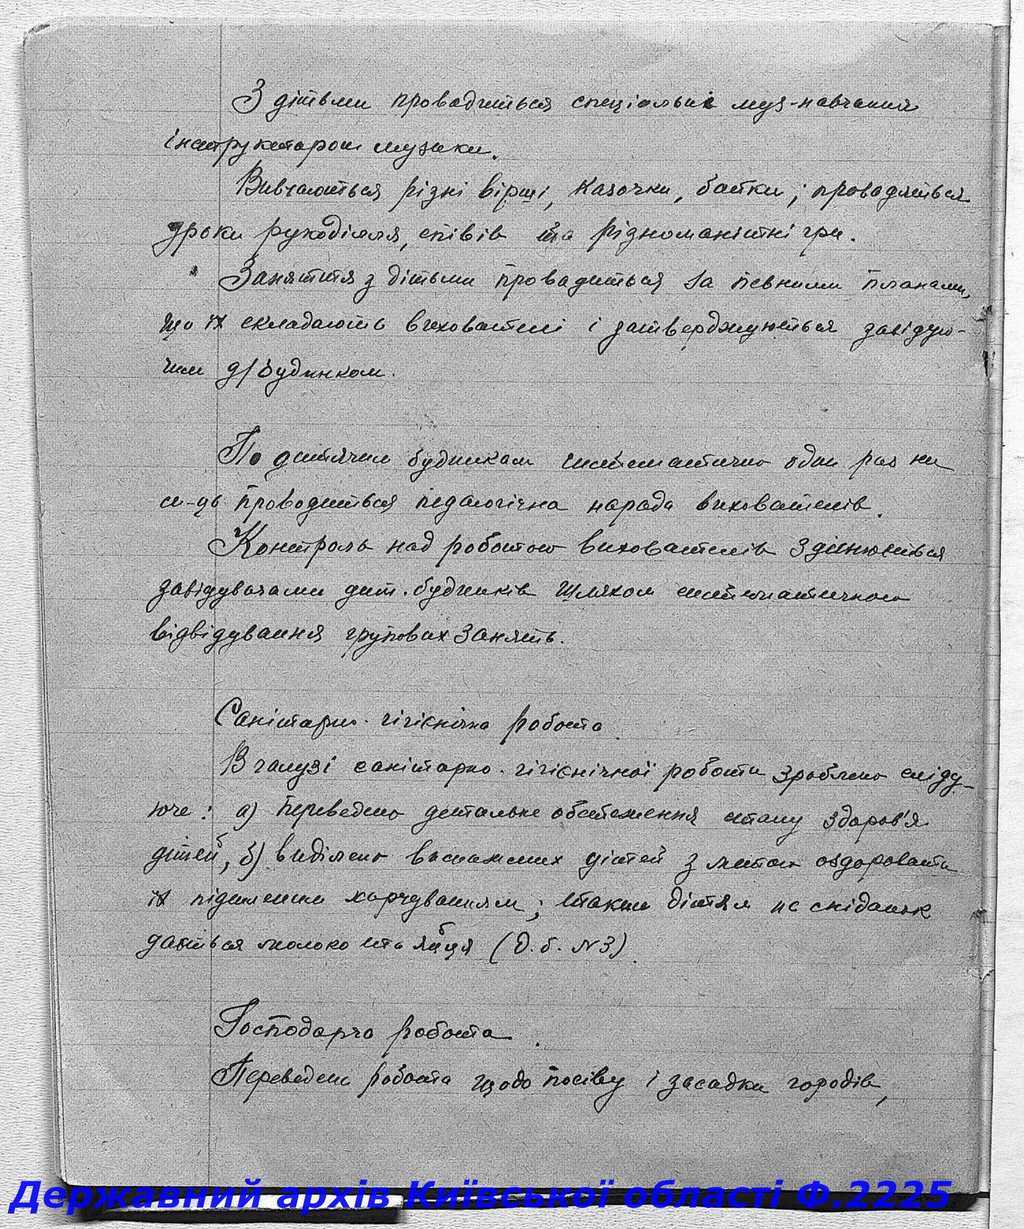 З дітьми провадиться спеціальні муз-навчання
інструктаром музики.
Вивчаються різні вірші, казочки, байки; провадяться
уроки рукоділля, співів та різноманітні гри.
Заняття з дітьми провадиться за певними планами,
що їх складають вихователі і затверджуються завідую-
чим д/будинком.
По дитячим будинкам систематично один раз на
проводиться педагогічна нарада вихователів.
Контроль над роботою вихователів здійнюється
завідувачами дит. будинків шляхом систематичного
відвідування групових занять.
Санітарно-гігієнічна робота.
В галузі санітарно-гігієнічної роботи зроблено сліду-
юче: а) переведено детальне обстеження стану здоров'я
дітей, б) виділено виснажених дітей з метою оздоровити
їх підиленим харчуванням; таким дітям на сніданок
дається молоко та яйця (д.б. №3).
Господарча робота.
Переведено робота щодо посіву і засадки городів,
Державний архів Київської області Ф.2225